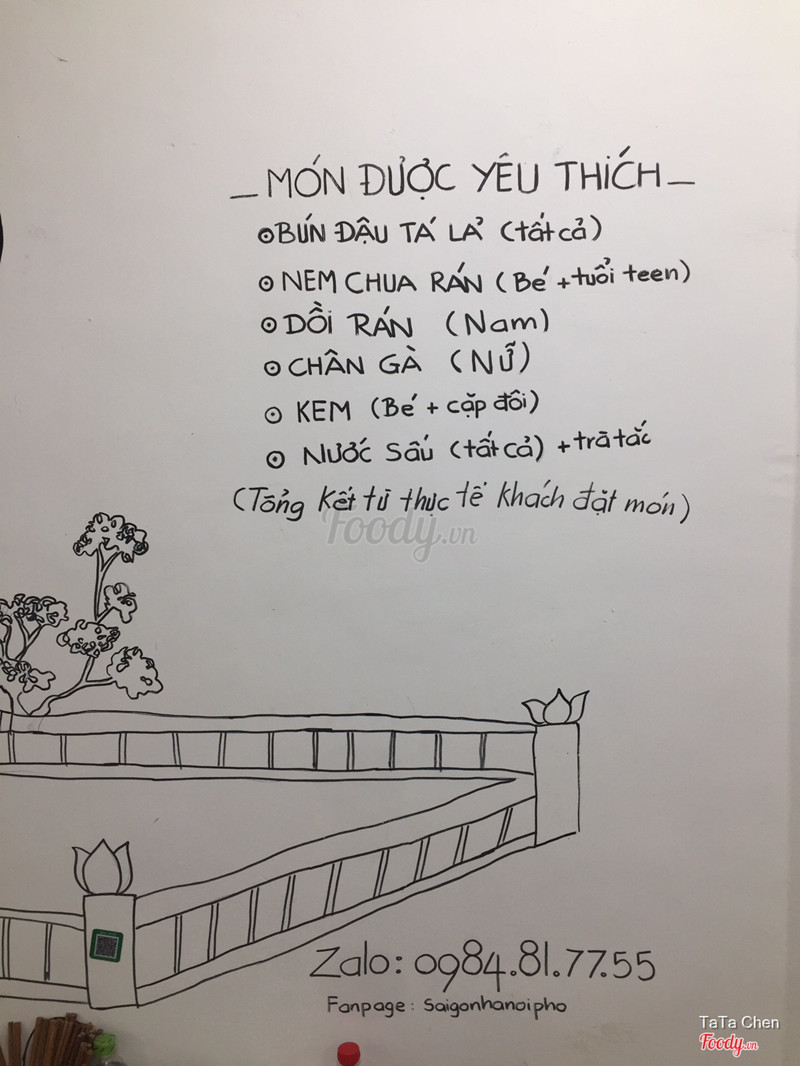 _ MÓN ĐƯỢC YÊU THÍCH _
BÚN ĐẬU TÁ LẢ (tất cả)
NEM CHUA RÁN (Bé + tuổi teen)
DỒI RÁN (Nam)
CHÂN GÀ (Nữ)
KEM (Bé + cặp đôi)
NƯỚC SẤU (tất cả) + trà tắc
(Tổng kết từ thực tế khách đặt món)
Foody.vn
Zalo: 0984.81.77.55
Fanpage: Saigonhanoipho
TaTa Chen
Foody.vn